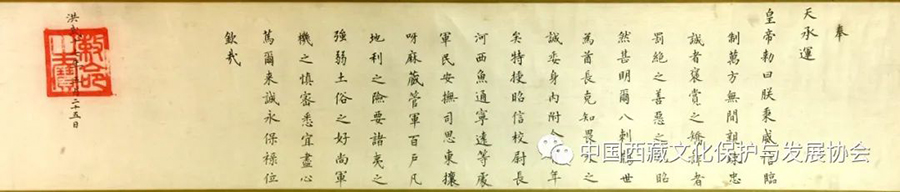 奉
天承運
皇帝勅曰朕秉威福臨
制萬方無間親疎忠
誠者褒賞之者
罰絕之善惡之昭
然甚明爾八剌世
為酋長克知畏之
誠委身內附年
矣特授昭信校尉長
河西魚通寧遠等處
軍民安撫司思東攘
呀麻蔵管軍百戶凡
地利之險要諸夷之
強弱土俗之好尚軍
機之慎審悉宜盡心
篤爾來誠永保祿位
欽哉
洪武二十五日
敕命之寶
中国西藏文化保护与发展协会